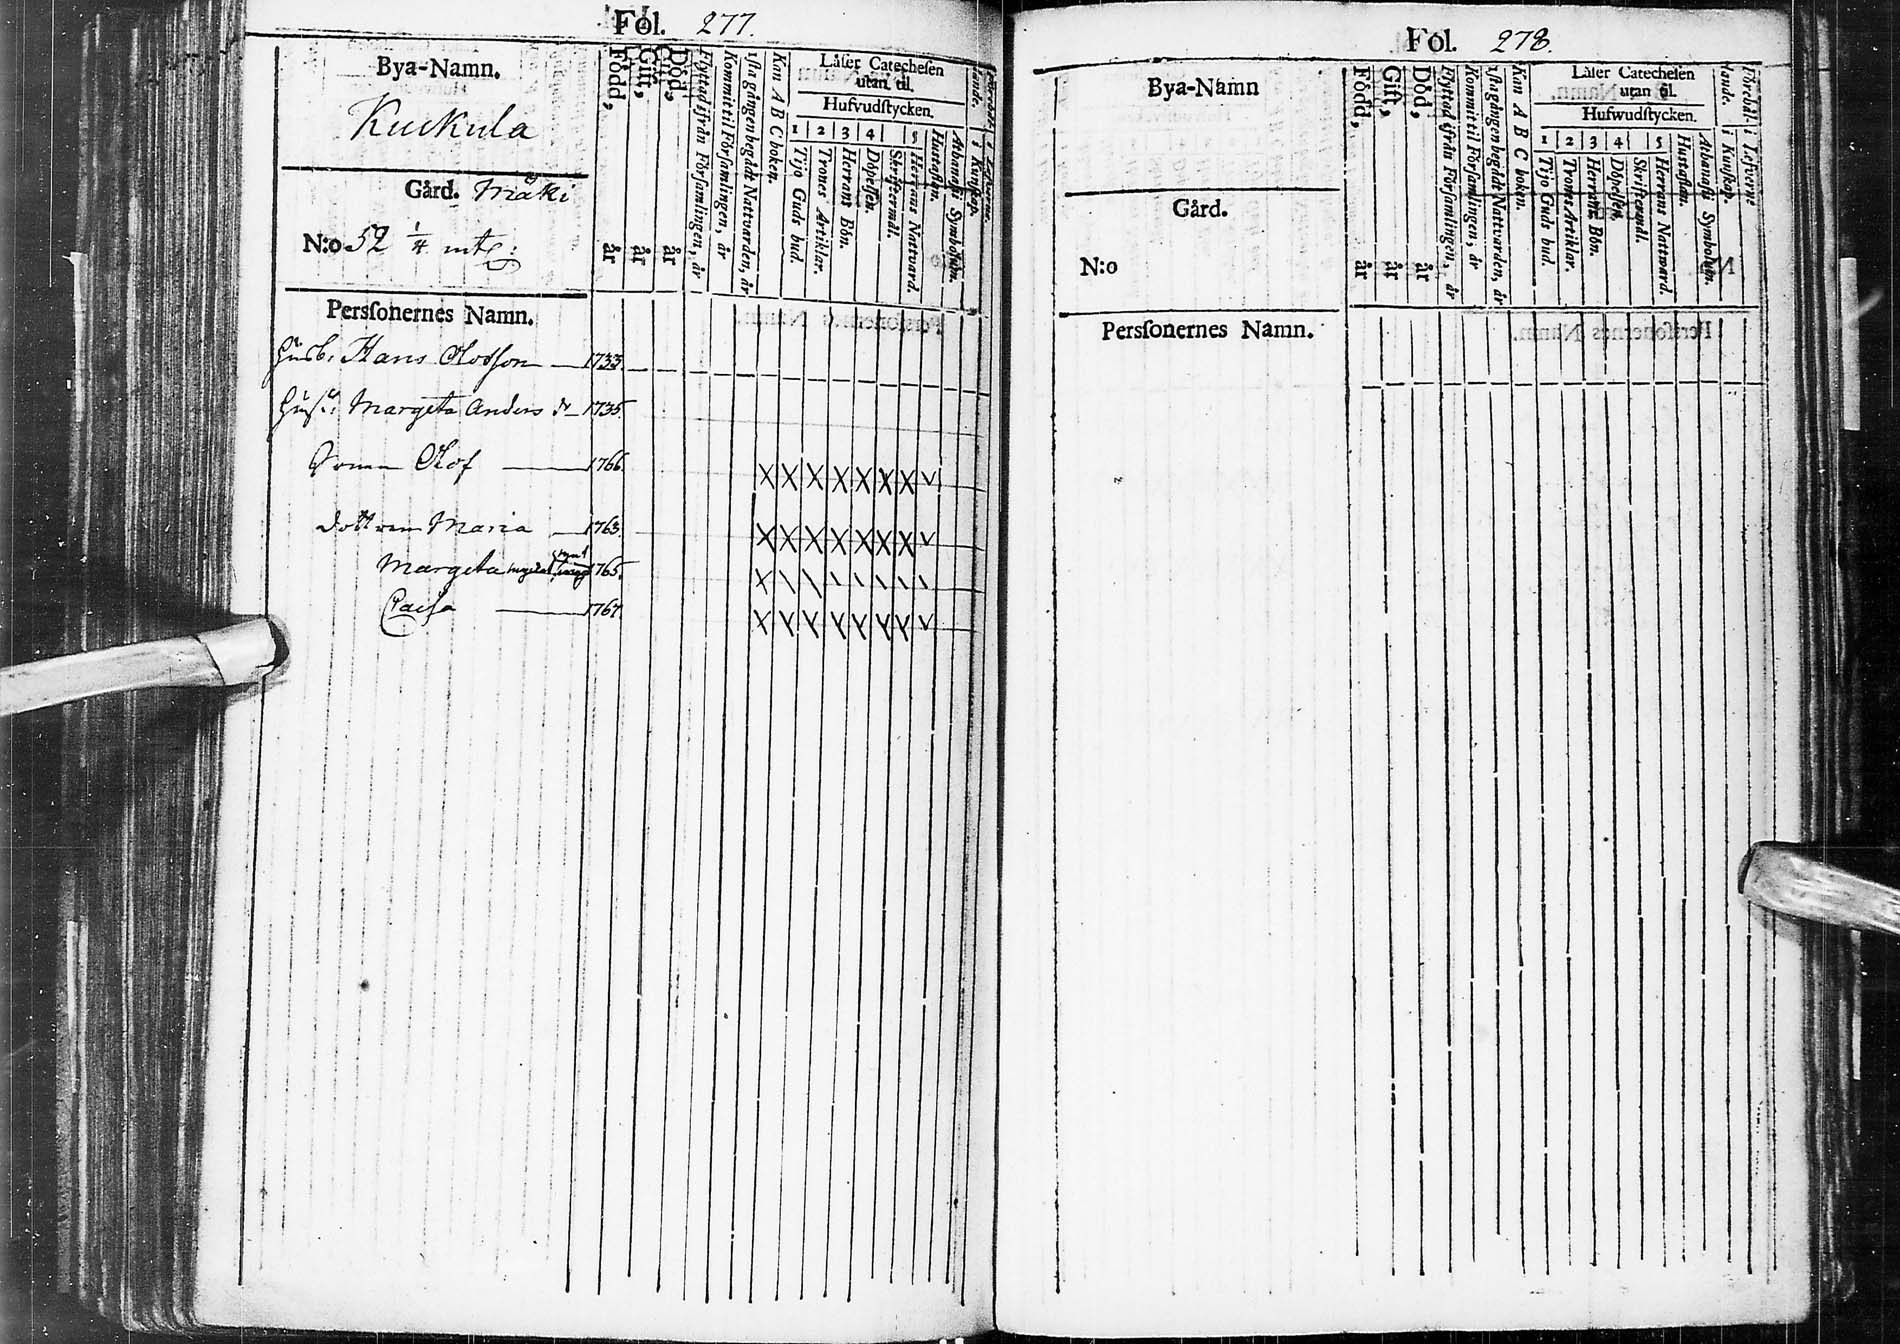 Fol. 277.
Bya-Namn.
Kuckula
Gård. Mäki
N:o 52 1/4 mtl:
Personernes Namn.
Född, år
Gift, år
Död, år
Flyttad ifrån Församlingen, år
Kommit til Församlingen, år
1sta gången begådt Nattvarden, år
Kan A B C boken.
Läser Catechesen
utan til.
Hufvudstycken.
1 2 3 4 5
Tijo Guds bud.
Trones Artiklar.
Herrans Bön.
Döpelsen.
Skriftermål.
Herrans Nattvard.
Hustaflan.
Athanasii Symbolum.
Husb. Hans Olofson 1733.
Hust: Margeta Anders dr 1735.
Sonen Olof 1766.
Dottren Maria 1763.
Margeta 1765.
Caisa 1767.
Fol. 278.
Bya-Namn
Gård.
N:o
Personernes Namn.
Född, år
Gift, år
Död, år
Flyttad ifrån Församlingen, år
Kommit til Församlingen, år
1sta gången begådt Nattvarden, år
Kan A B C boken.
Läser Catechesen
utan til.
Hufwudstycken.
1 2 3 4 5
Tijo Guds bud.
Trones Artiklar.
Herrans Bön.
Döpelsen.
Skriftermål.
Herrans Nattward.
Hustaflan.
Athanasii Symbolum.
i Kunskap.
i Lefverne